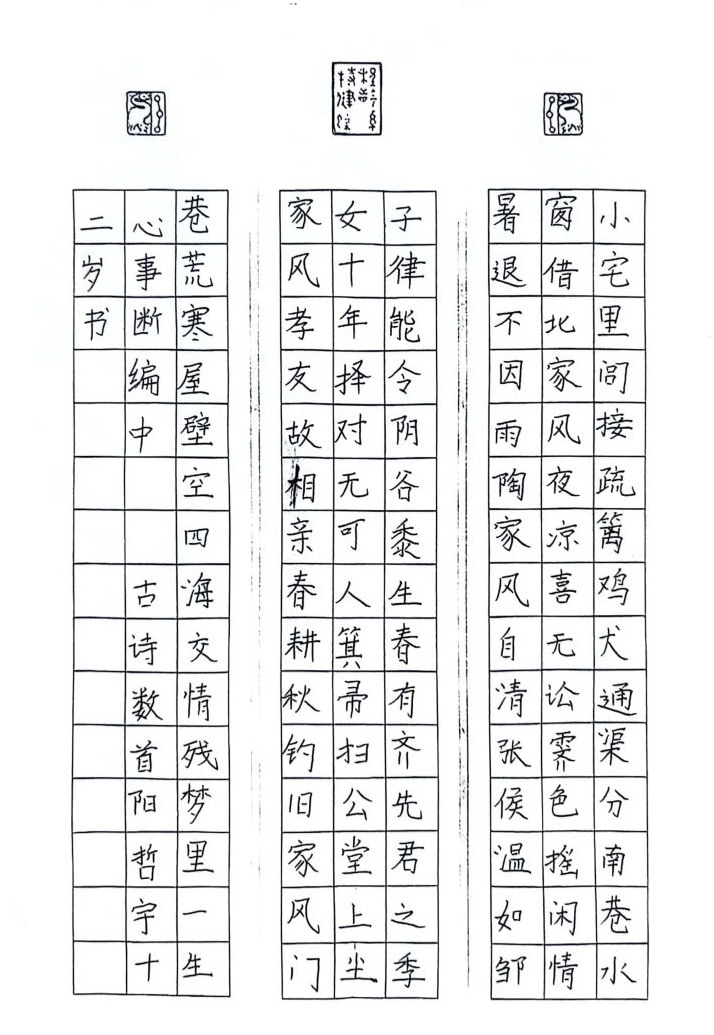 小宅里闾接疏篱鸡犬通渠分南巷水
窗借北家风夜凉喜无讼霁色摇闲情
暑退不因雨陶家风自清张侯温如邹
子律能令阴谷黍生春有齐先君之季
女十年择对无可人箕帚扫公堂上尘
家风孝友故相亲春耕秋钓旧家风门
巷荒寒屋壁空四海交情残梦里一生
心事断编中 古诗数首阳哲宇十
二岁书